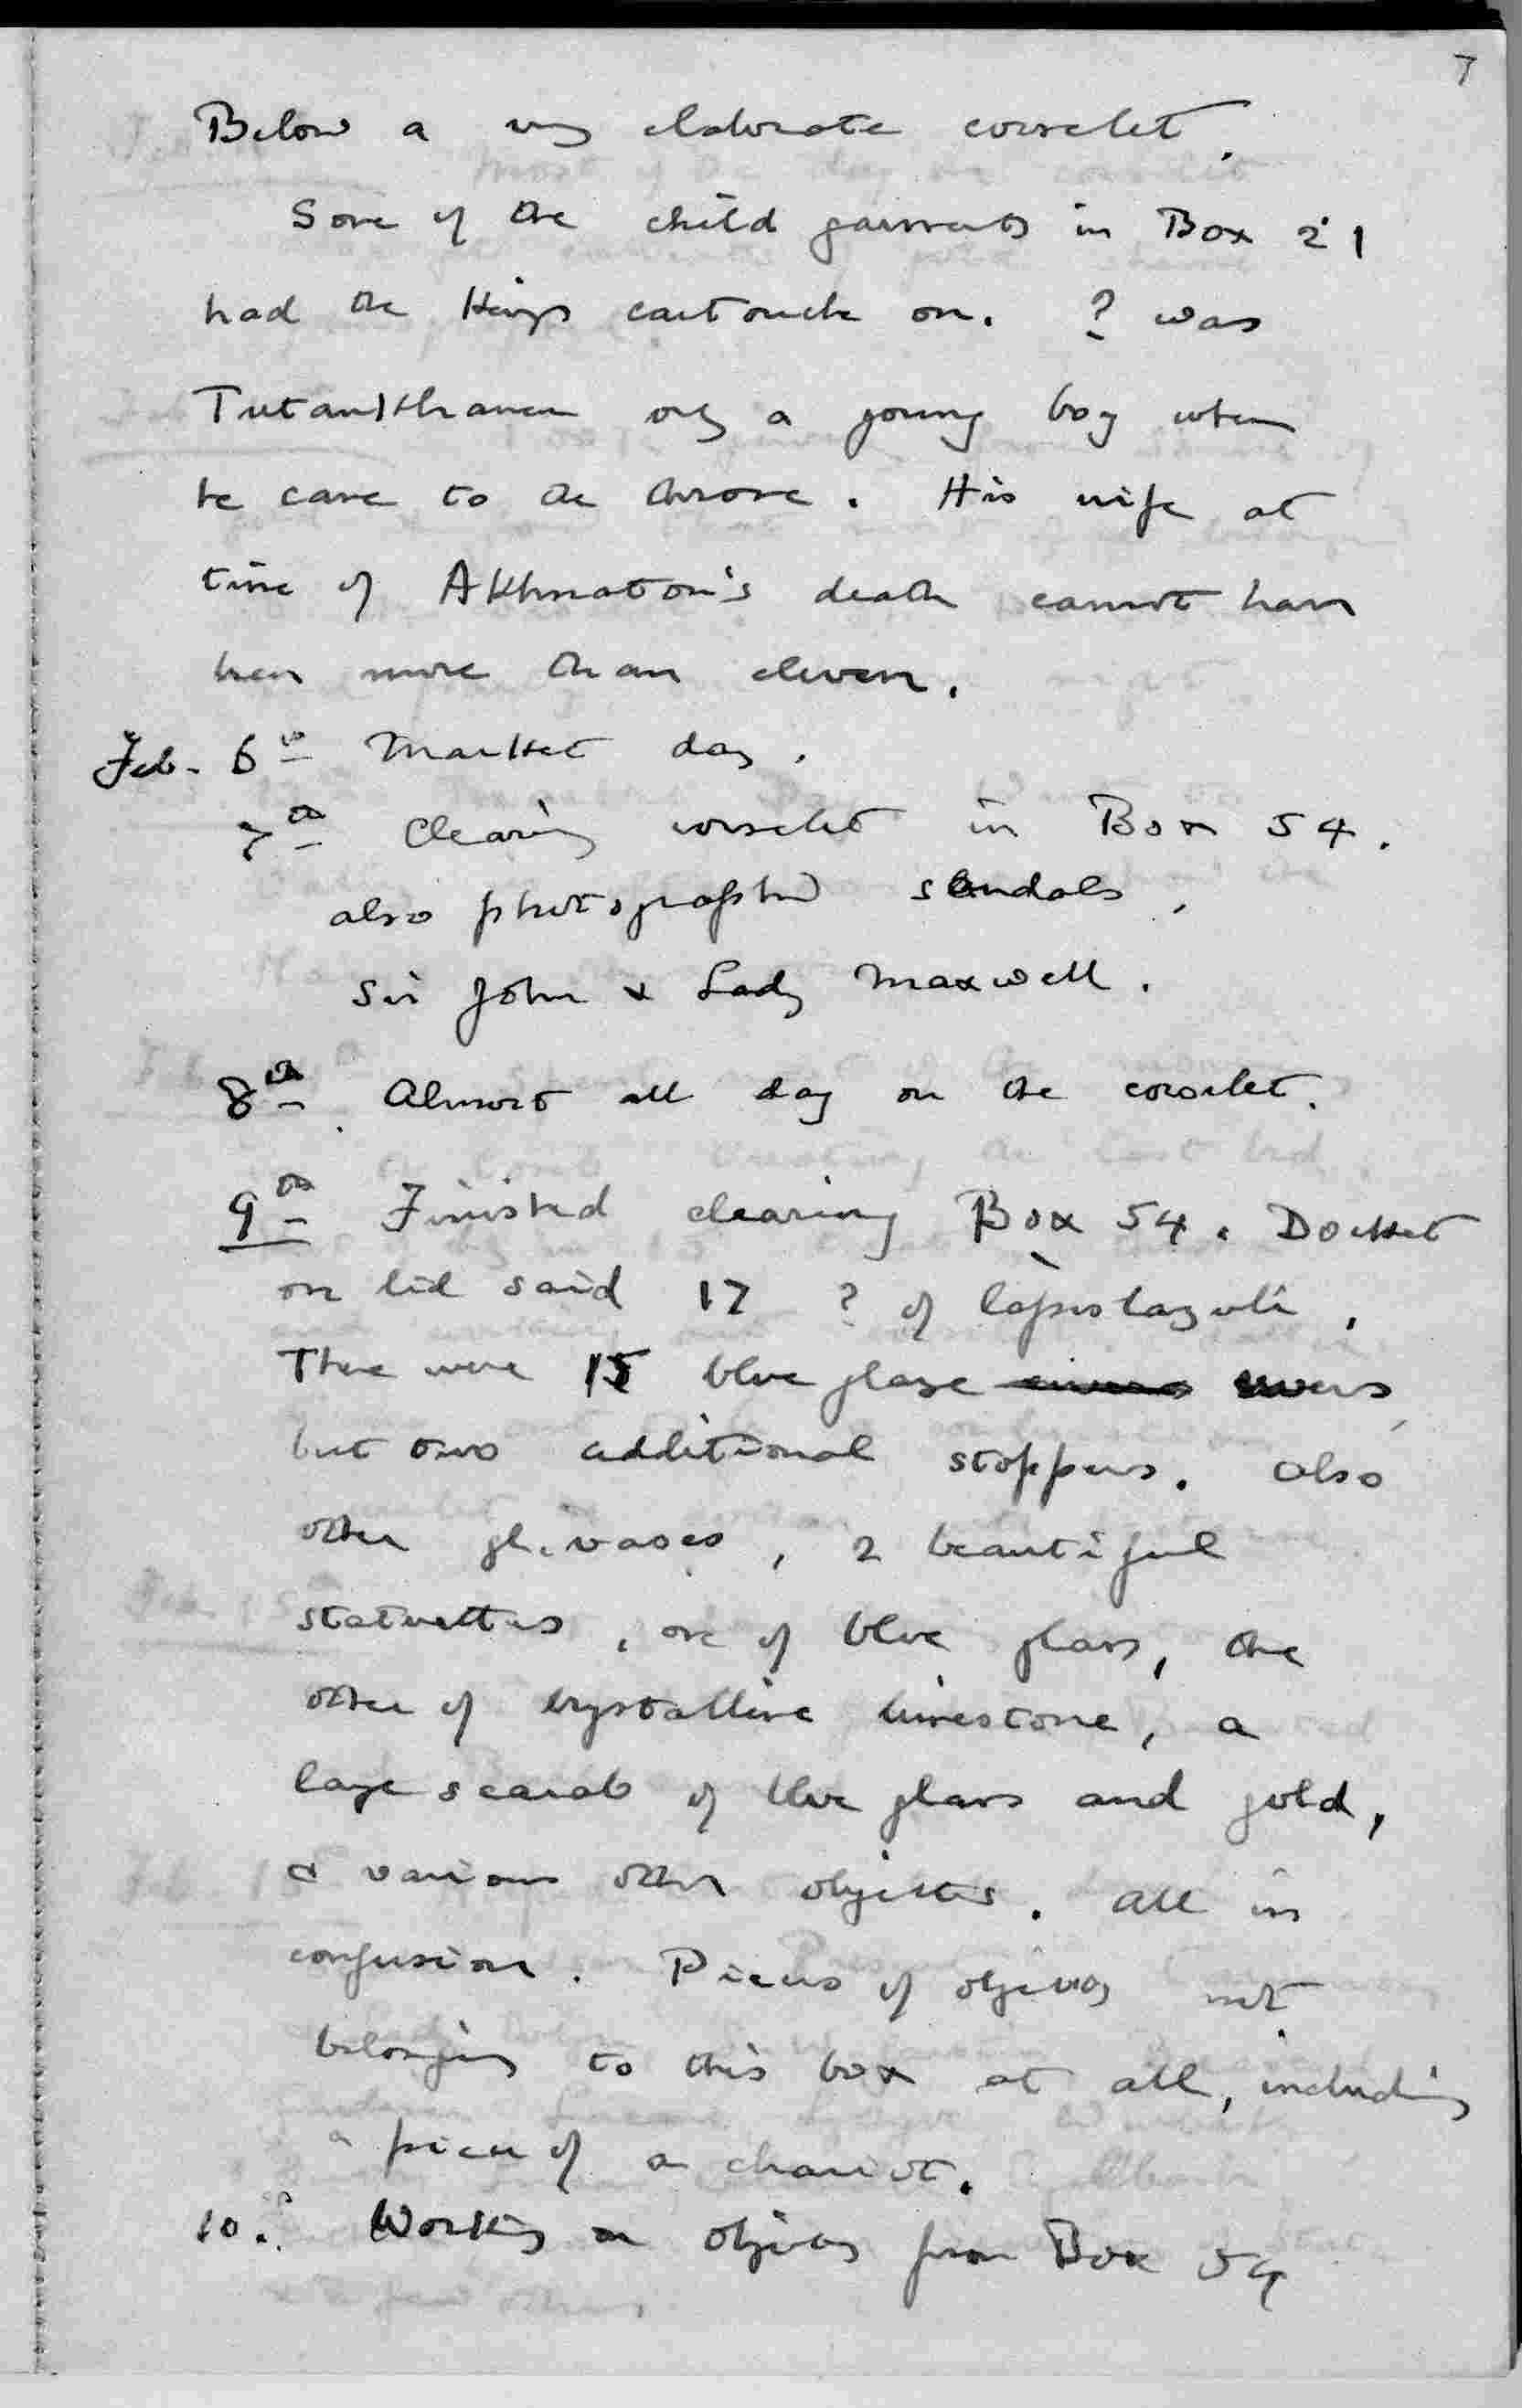 7
Below a very elaborate corselet.
Some of the child garments in Box 21
had the Kings cartouche on. ? was
Tutankhamen only a young boy when
he came to the throne. His wife at
time of Akhnaton's death cannot have
been more than eleven.
Feb. 6th Market day.
7th Clearing corselet in Box 54.
also photographed sandals,
Sir John & Lady Maxwell.
8th. Almost all day on the corselet.
9th Finished clearing Box 54. Docket
on lid said 17 ? of lapis lazuli,
There were 15 blue glaze ewers,
but two additional stoppers. Also
other gl. vases, 2 beautiful
statuettes, one of blue glass, the
other of crystalline limestone, a
large scarab of blue glass and gold,
& various other objects. All in
confusion. Pieces of objects not
belonging to this box at all, including
a piece of a chariot.
10. Working on objects from Box 54